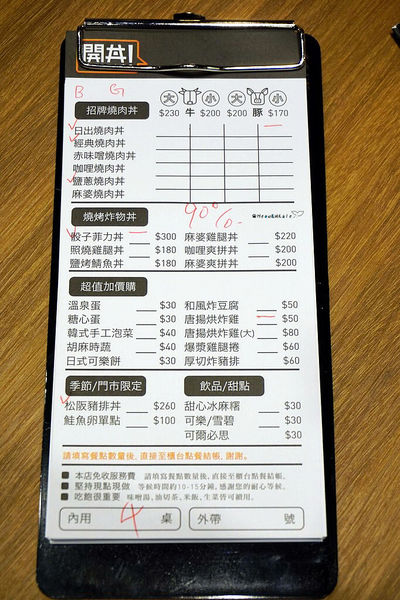 開丼!
B G
招牌燒肉丼 大 牛 小 大 豚 小
$230 $200 $200 $170
日出燒肉丼
經典燒肉丼
赤味噌燒肉丼
咖哩燒肉丼
鹽蔥燒肉丼
麻婆燒肉丼
燒烤炸物丼 90%
骰子菲力丼 $300 麻婆雞腿丼 $220
照燒雞腿丼 $180 咖哩爽拼丼 $200
鹽烤鯖魚丼 $180 麻婆爽拼丼 $200
超值加價購
溫泉蛋 $30 和風炸豆腐 $50
糖心蛋 $30 唐揚烘炸雞 $50
韓式手工泡菜 $40 唐揚烘炸雞(大) $80
胡麻時蔬 $40 爆漿雞腿捲 $60
日式可樂餅 $30 厚切炸豬排 $60
季節/門市限定 飲品/甜點
松阪豬排丼 $260 甜心冰麻糬 $30
鮭魚卵單點 $100 可樂/雪碧 $30
可爾必思 $30
請填寫餐點數量後, 直接至櫃台點餐結帳, 謝謝。
本店免收服務費 請填寫餐點數量後, 直接至櫃台點餐結帳。
堅持現點現做 等候時間約10-15分鐘, 感謝您的耐心等候。
吃飽很重要 味噌湯、油切茶、米飯、生菜皆可續用。
內用 4 桌 外帶 號